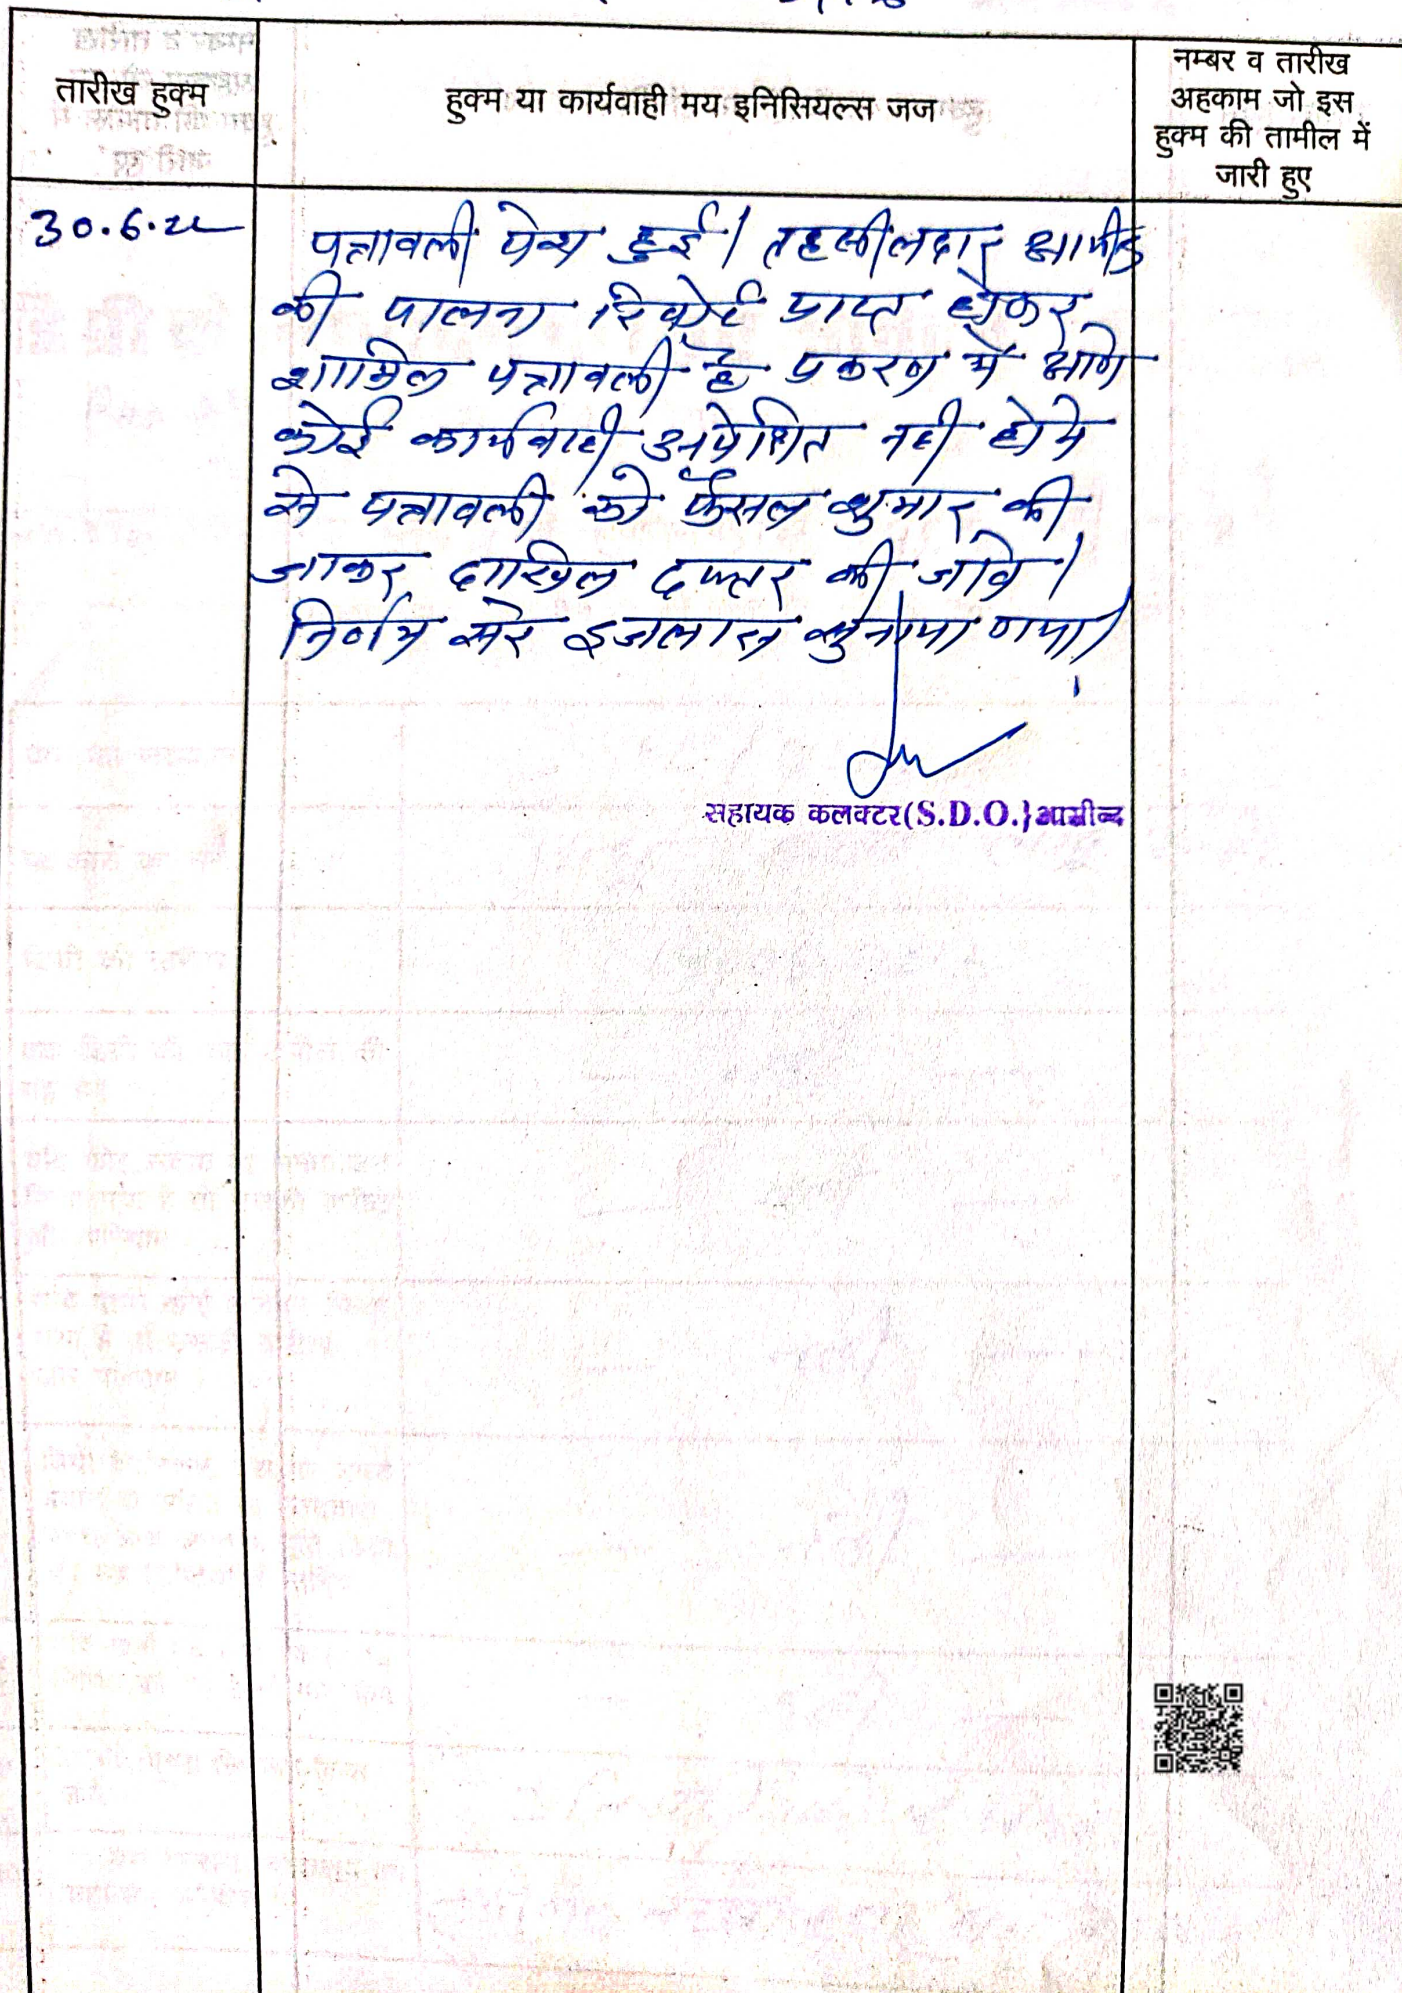 तारीख हुक्म
हुक्म या कार्यवाही मय इनिसियल्स जज
नम्बर व तारीख
अहकाम जो इस
हुक्म की तामील में
जारी हुए
30.6.22
पत्रावली पेश हुई। तहसीलदार आसीन्द
की पालना रिपोर्ट प्राप्त होकर
शामिल पत्रावली है प्रकरण में आगे
कोई कार्यवाही अपेक्षित नही होने
से पत्रावली को फैसल शुमार की
जाकर दाखिल दफ्तर की जावे।
निर्णय सरे इजलास सुनाया गया।
सहायक कलक्टर(S.D.O.)आसीन्द